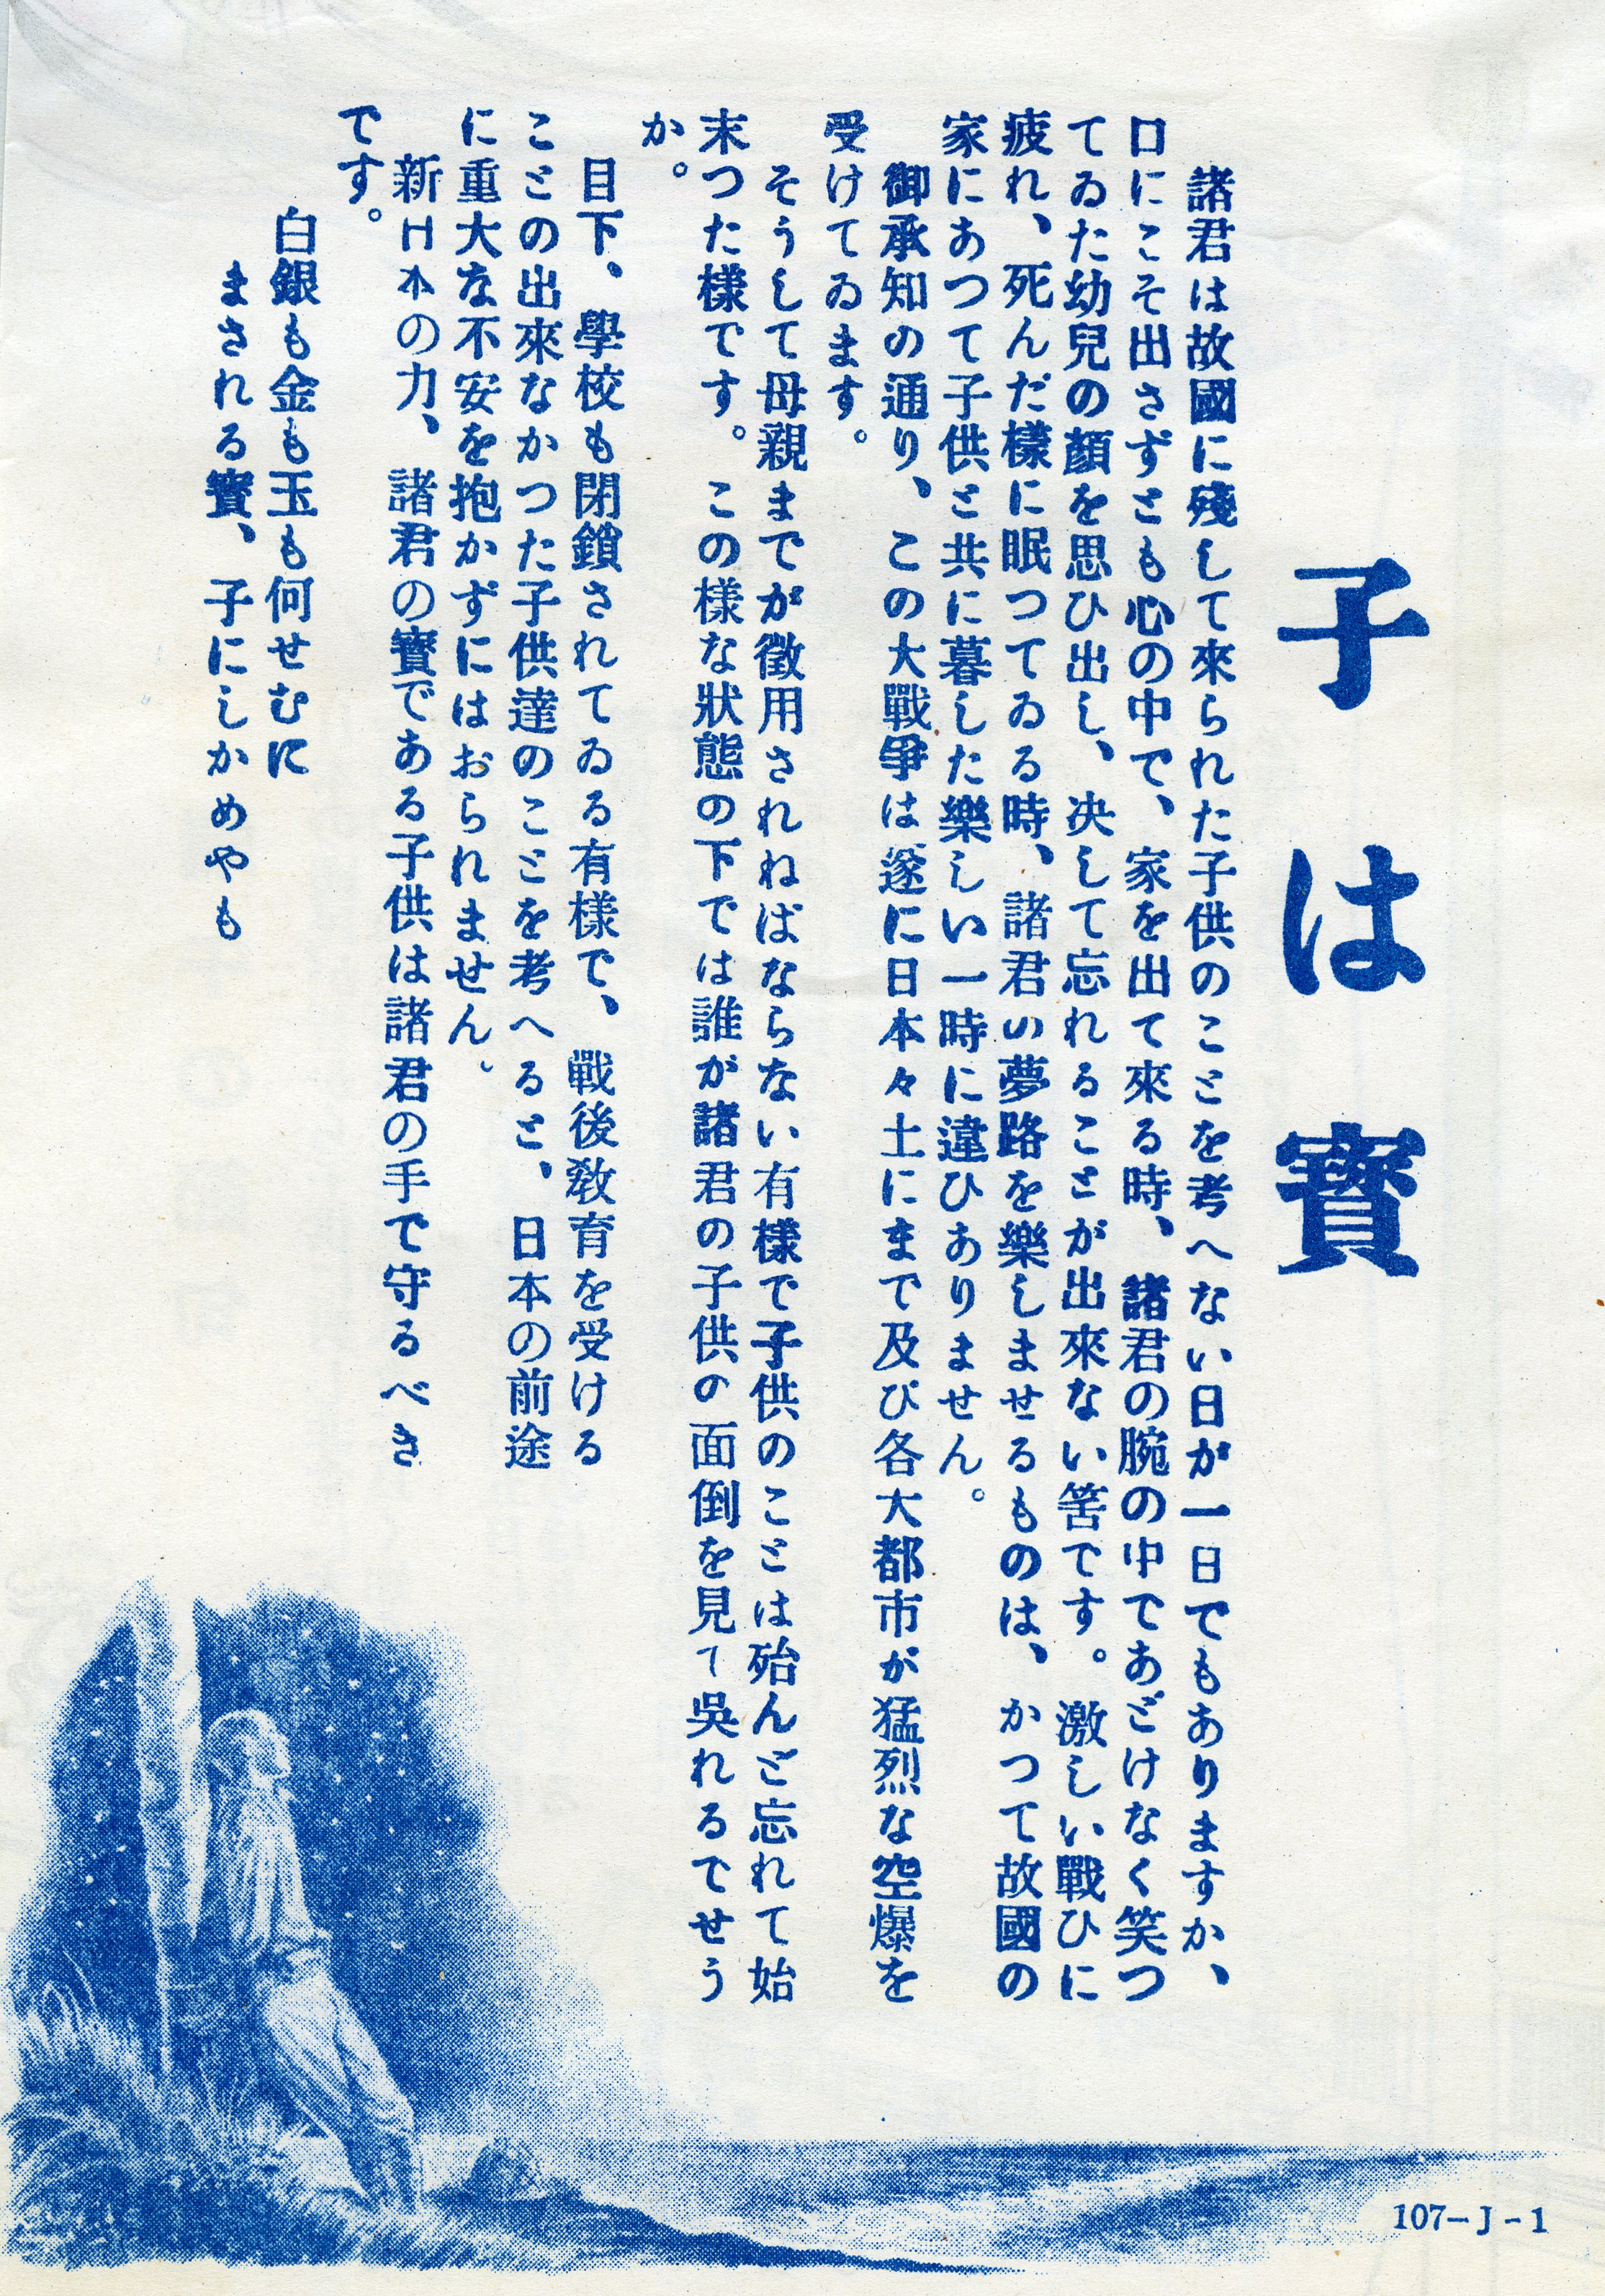 子は寳
諸君は故國に殘して來られた子供のことを考へない日が一日でもありますか、
口にこそ出さずとも心の中で、家を出て來る時、諸君の腕の中であどけなく笑つ
てゐた幼兒の顏を思ひ出し、决して忘れることが出來ない筈です。激しい戰ひに
疲れ、死んだ樣に眠つてゐる時、諸君の夢路を樂しませるものは、かつて故國の
家にあつて子供と共に暮した樂しい一時に違ひありません。
御承知の通り、この大戰爭は遂に日本々土にまで及び各大都市が猛烈な空爆を
受けてゐます。
そうして母親までが徵用されねばならない有樣で子供のことは殆んど忘れて始
末つた樣です。この樣な狀態の下では誰が諸君の子供の面倒を見て吳れるでせう
か。
目下、學校も閉鎖されてゐる有樣で、戰後敎育を受ける
ことの出來なかつた子供達のことを考へると、日本の前途
に重大な不安を抱かずにはおられません。
新日本の力、諸君の寳である子供は諸君の手で守るべき
です。
白銀も金も玉も何せむに
まされる寳、子にしかめやも
107-J-1